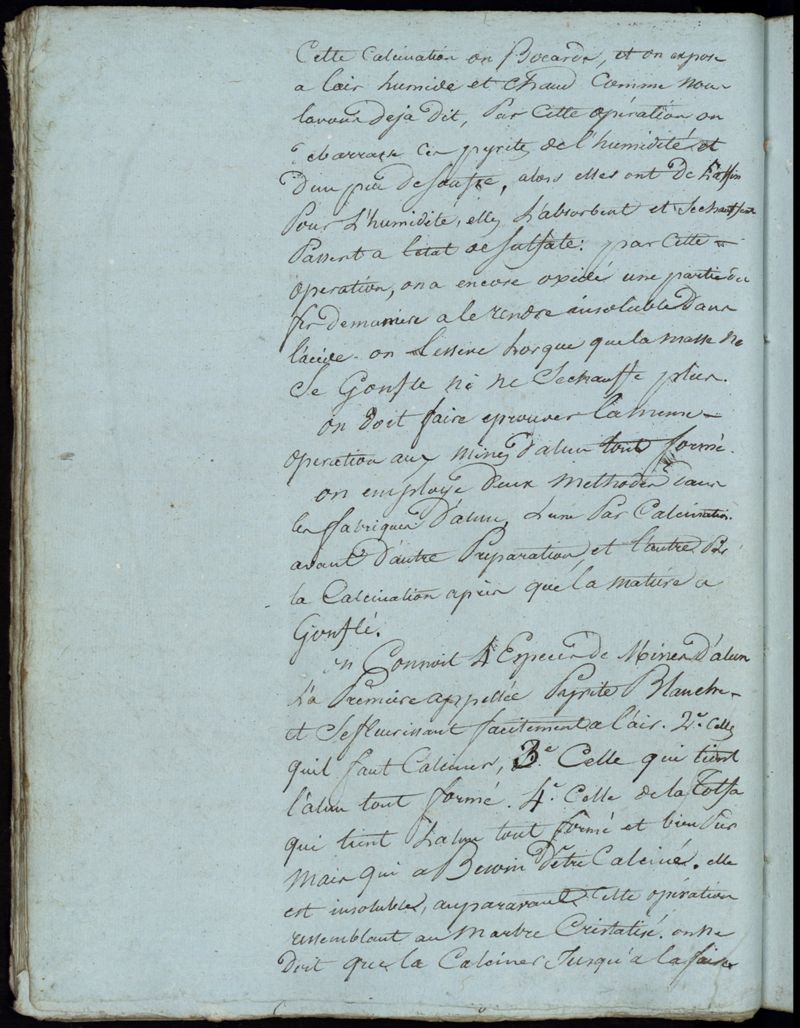 Cette Calcination on Bocarde, et on expose
a lair humide et chaud Comme nous
lavons deja Dit, Par Cette opération on
debarrasse Ces pyrites de l'humidité et
Dun peu de soufre, alors elles ont De
Pour L'humidité, elles L'absorbent et Sechauffent
Passent a l'état de sulfate: par Cette
operation, on a encore oxidé une partie du
fer de maniere a le rendre insoluble Dans
l'acide. on Lessive Lorsque que la masse ne
Se Gonfle ni ne Sechauffe plus.
on doit faire eprouver la meme
operation aux mines d'alun tout formé.
on employe Deux methodes dans
les fabriques D'alun, Lune Par Calcination
avant D'autre Preparation et l'autre Par
la Calcination après que la matière a
Gonflé.
on Connoit 4 Especes de Mines D'alun
La Première appellée Pyrite Blanche
et Sefleurissant facilement a l'air. 2e. Celles
quil faut Calciner, 3e. Celle qui tient
l'alun tout formé. 4e. Celle de la Tolfa
qui tient L'alun tout formé et bien Pur
Mais qui a Besoin D'etre Calciné. elle
est insoluble, auparavant Cette operation
ressemblant au Marbre Cristalisé. on ne
Doit que la Calciner Jusqu'a la faire